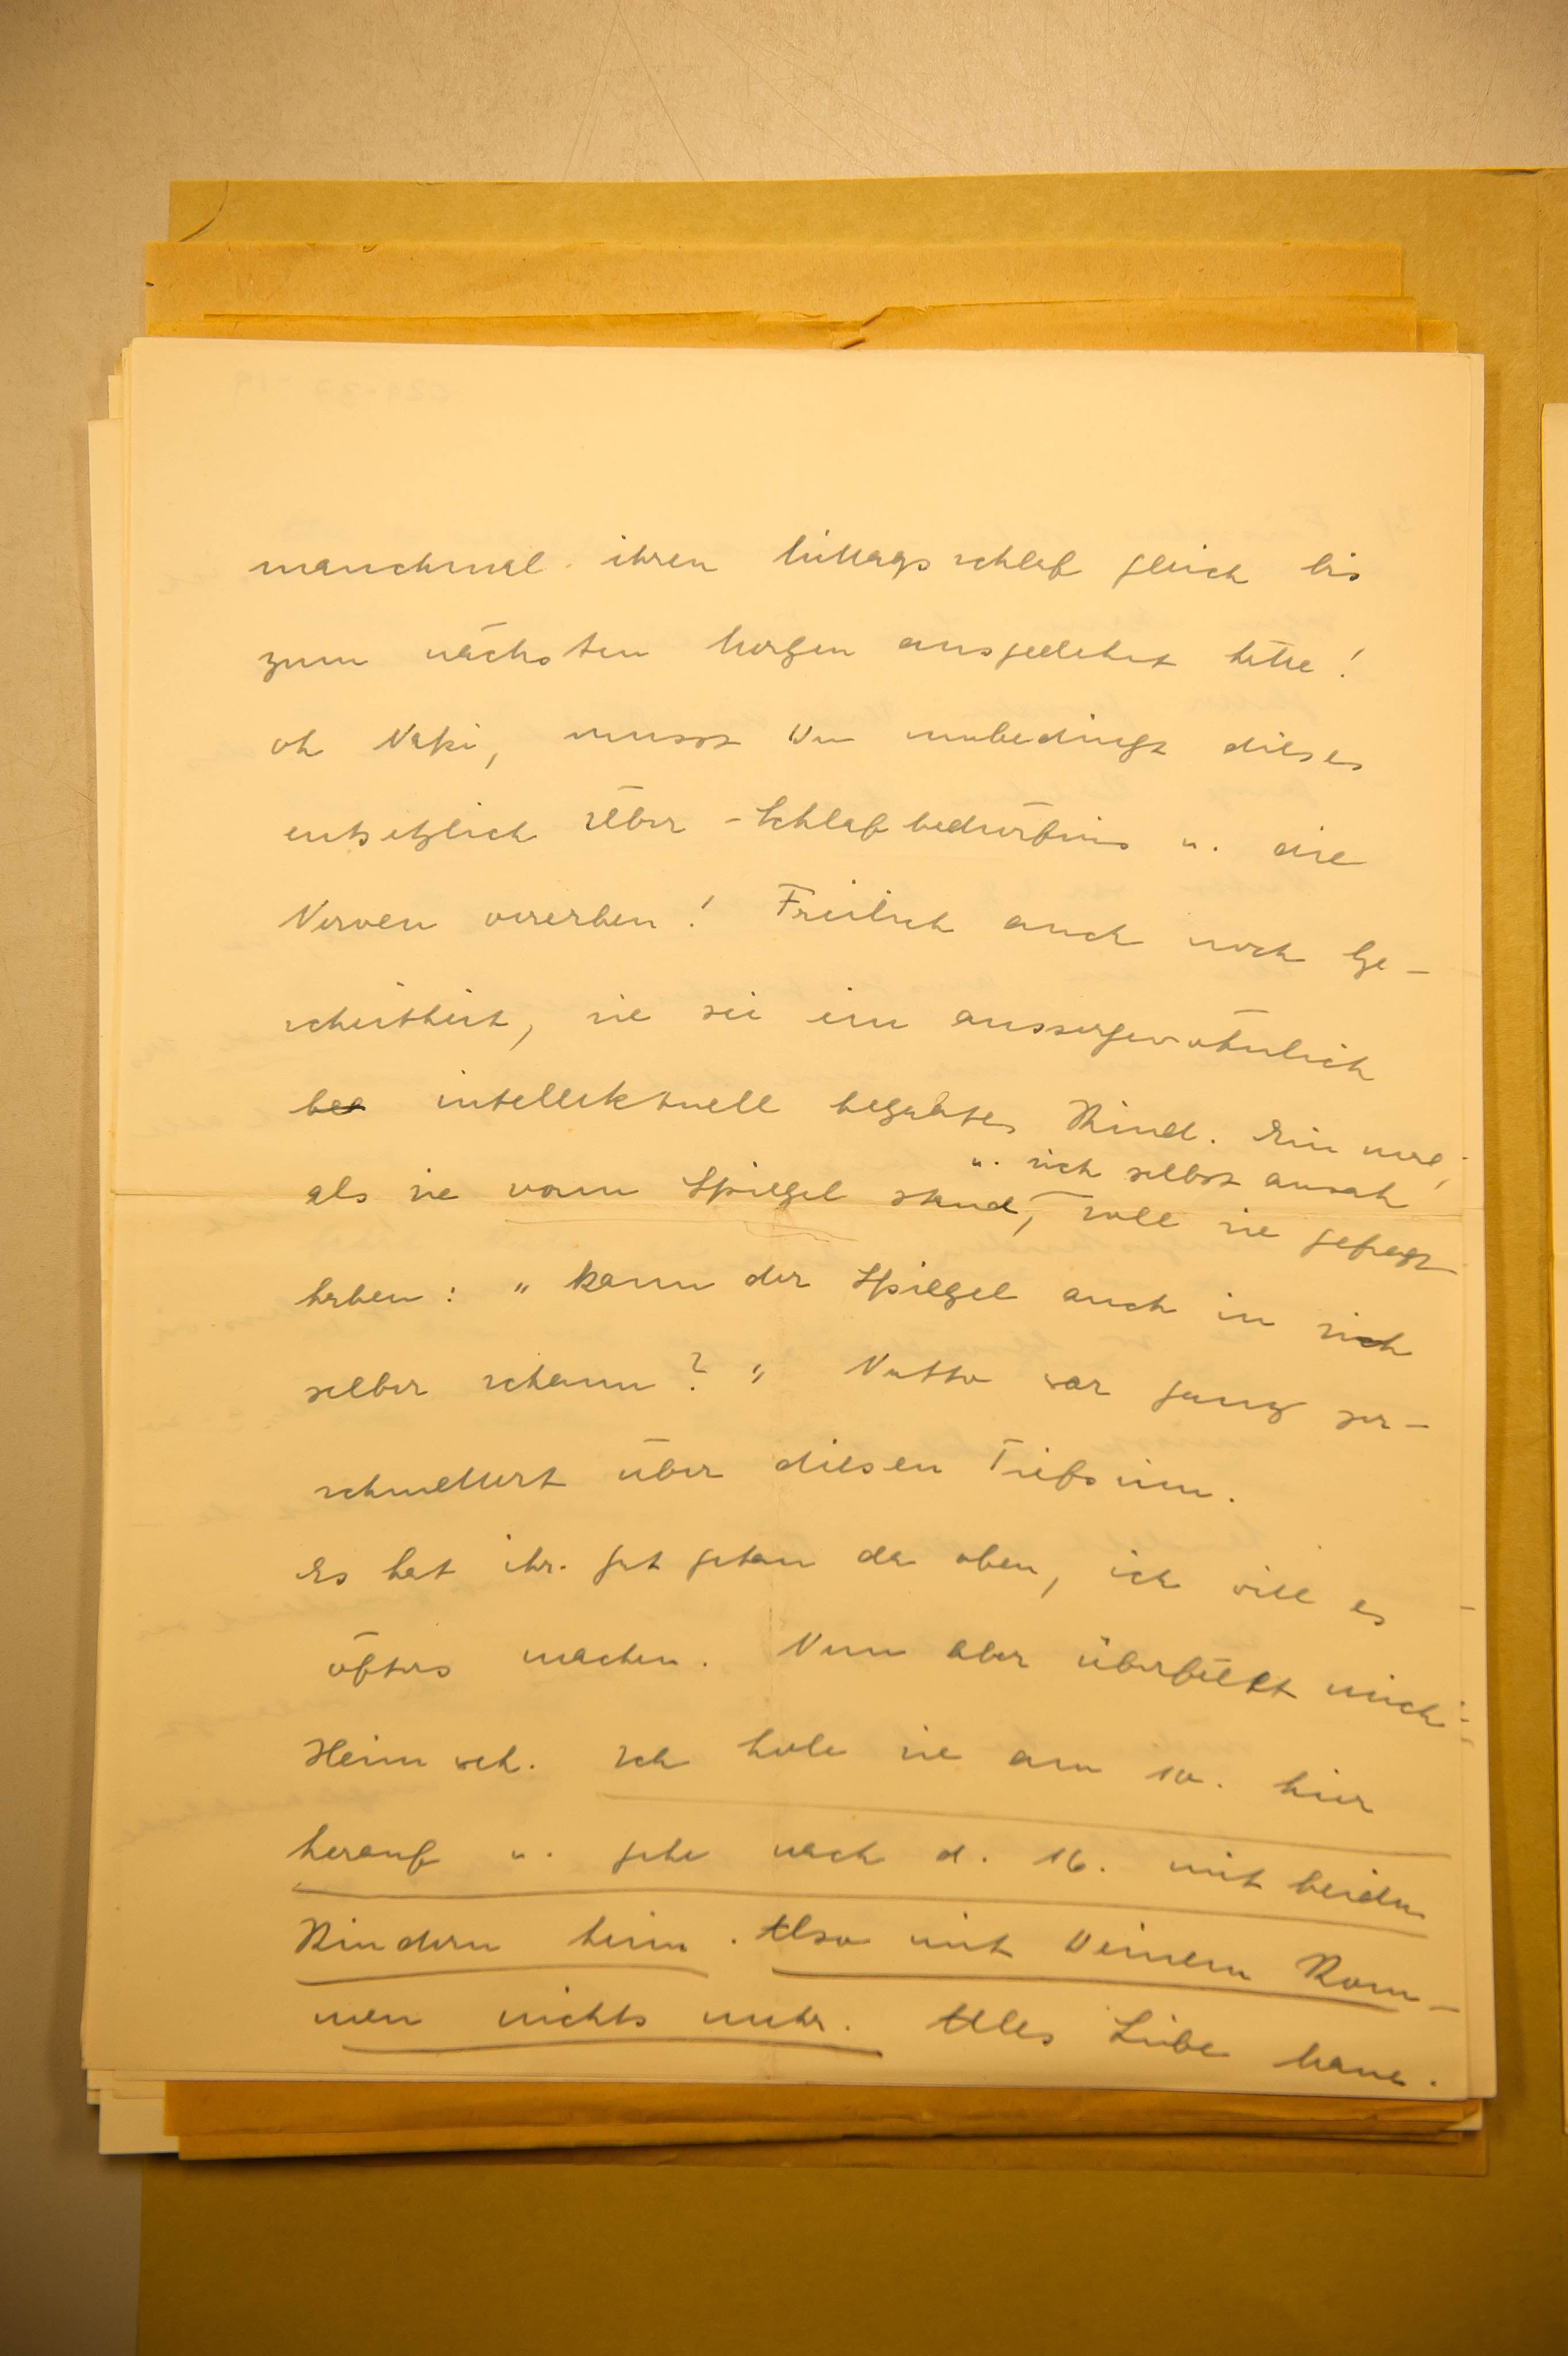 manchmal ihren Mittagsschlaf gleich bis
zum nächsten Morgen ausgedehnt hätte!
oh Naki, musst Du unbedingt dieses
entsetzlich Über-Schlafbedürfnis u. die
Nerven vererben! Freilich auch noch Ge-
scheitheit, sie sei ein aussergewöhnlich
beg intellektuell begabtes Kind. Ein mal,
als sie vorm Spiegel stand, u. sich selbst ansah, soll sie gefragt
haben: "kann der Spiegel auch in sich
selber schaun?" Natto war ganz zer-
schmettert über diesen Tiefsinn.
Es hat ihr gut getan da oben, ich will es
öfters machen. Nun aber überfällt mich
Heimweh. Ich hole sie am 10. hier
herauf u. gehe nach d. 16. mit beiden
Kindern heim. Also mit Deinem Kom-
men nichts mehr. Alles Liebe